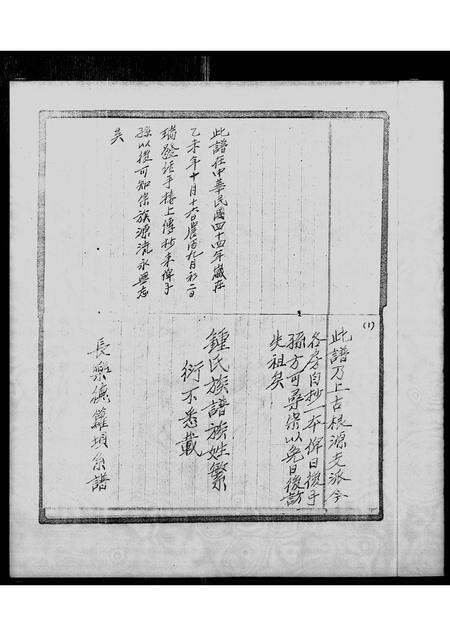 (1)
此譜万上古根源支派今
各房自抄一本俾日後子
孫方可尋宗以免日後訪
失祖矣
鍾氏族譜族姓繁
衍不悉載
長樂鎮蘿垻系譜
此譜在中華民國四十四年歲在
乙未年十月十六日農曆九月初二日
瑞發手接上傳抄来俾子
孫以後可知宗族源流永無忘
矣